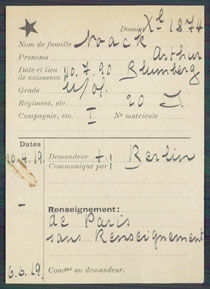 Dossier Xl 1874
Nom de famille Noack
Prénoms Arthur
Date et lieu de naissance 10.7.90 Blumberg
Grade
Régiment, etc. 20 I
Compagnie, etc. I Nº matricule
Dates
Demandeur Berlin
Communiqué par
Renseignement:
de Paris
sans Renseignement
6.6.19. Comqué au demandeur.